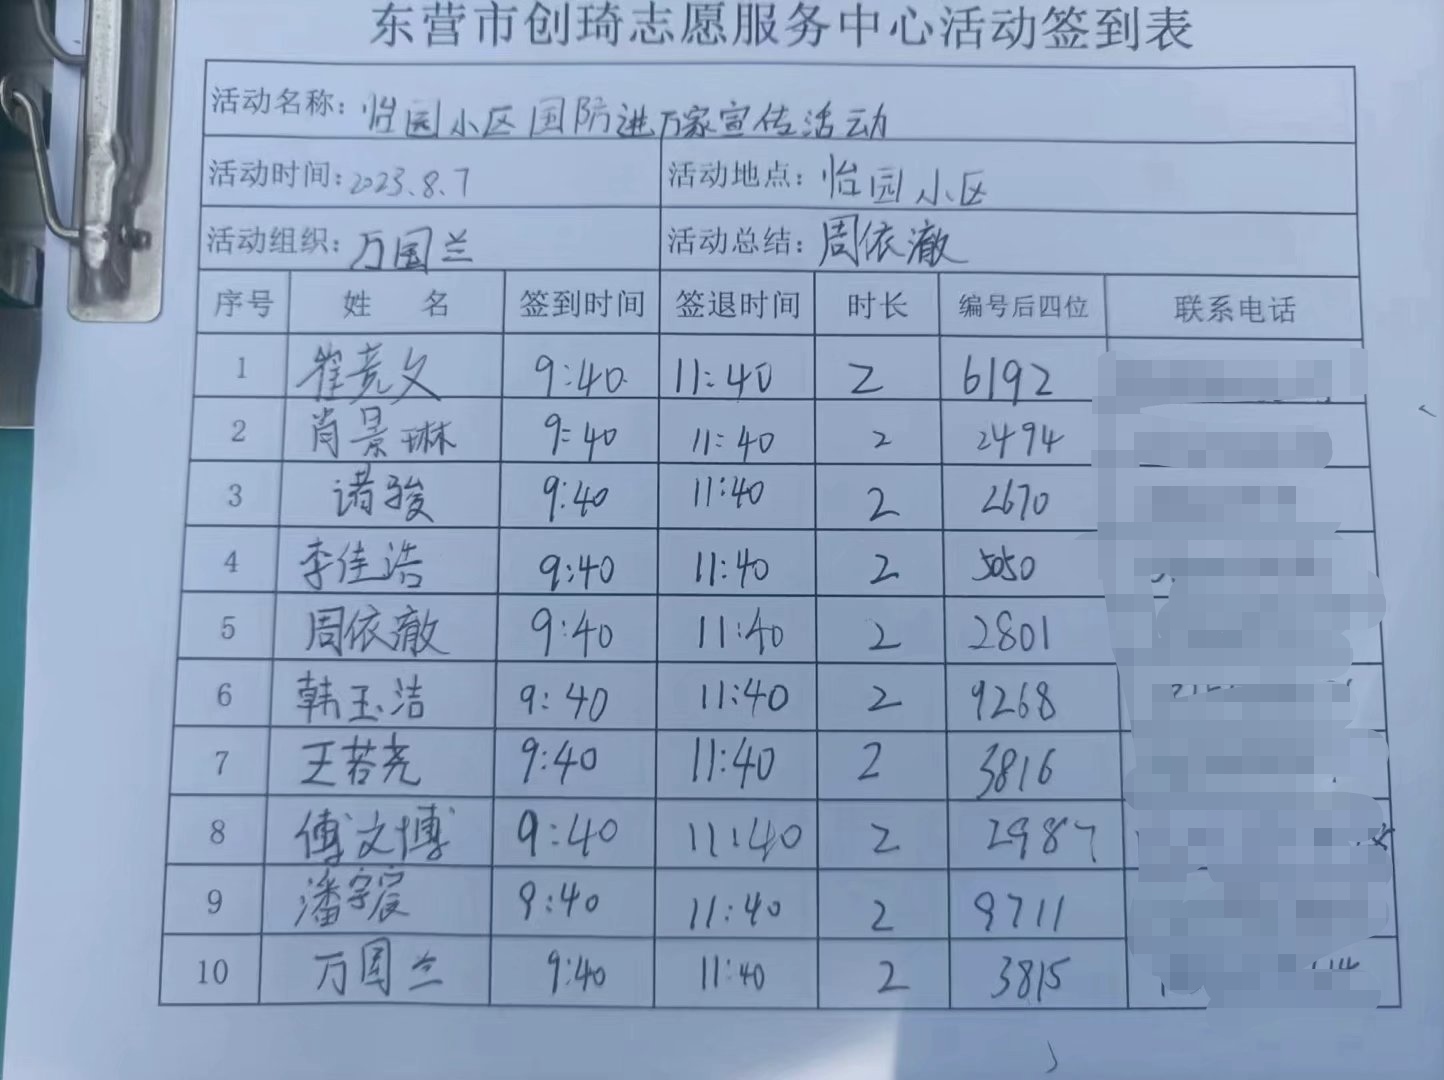 东营市创琦志愿服务中心活动签到表
活动名称：怡园小区国防进万家宣传活动
活动时间：2023.8.7 活动地点：怡园小区
活动组织：万国兰 活动总结：周依澈
序号 姓 名 签到时间 签退时间 时长 编号后四位 联系电话
1 崔竞文 9:40 11:40 2 6192
2 肖景琳 9:40 11:40 2 2494
3 诸骏 9:40 11:40 2 2670
4 李佳浩 9:40 11:40 2 5050
5 周依澈 9:40 11:40 2 2801
6 韩玉洁 9:40 11:40 2 9268
7 王若尧 9:40 11:40 2 3816
8 傅文博 9:40 11:40 2 2987
9 潘宇宸 9:40 11:40 2 9711
10 万国兰 9:40 11:40 2 3815